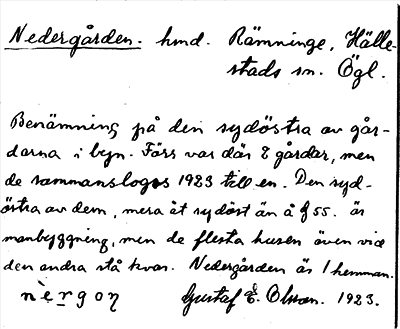 Nedergården. hmd. Rämninge, Hälle-
stads sn. Ögl.
Benämning på den sydöstra av går-
darna i byn. Förs var där 2 gårdar, men
de sammanslogos 1923 till en. Den syd-
östra av dem, mera åt sydöst än å § 55. är
manbyggning, men de flesta husen även vid
den andra stå kvar. Nedergården är 1 hemman.
nèrgon Gustaf E. Olsson. 1923.